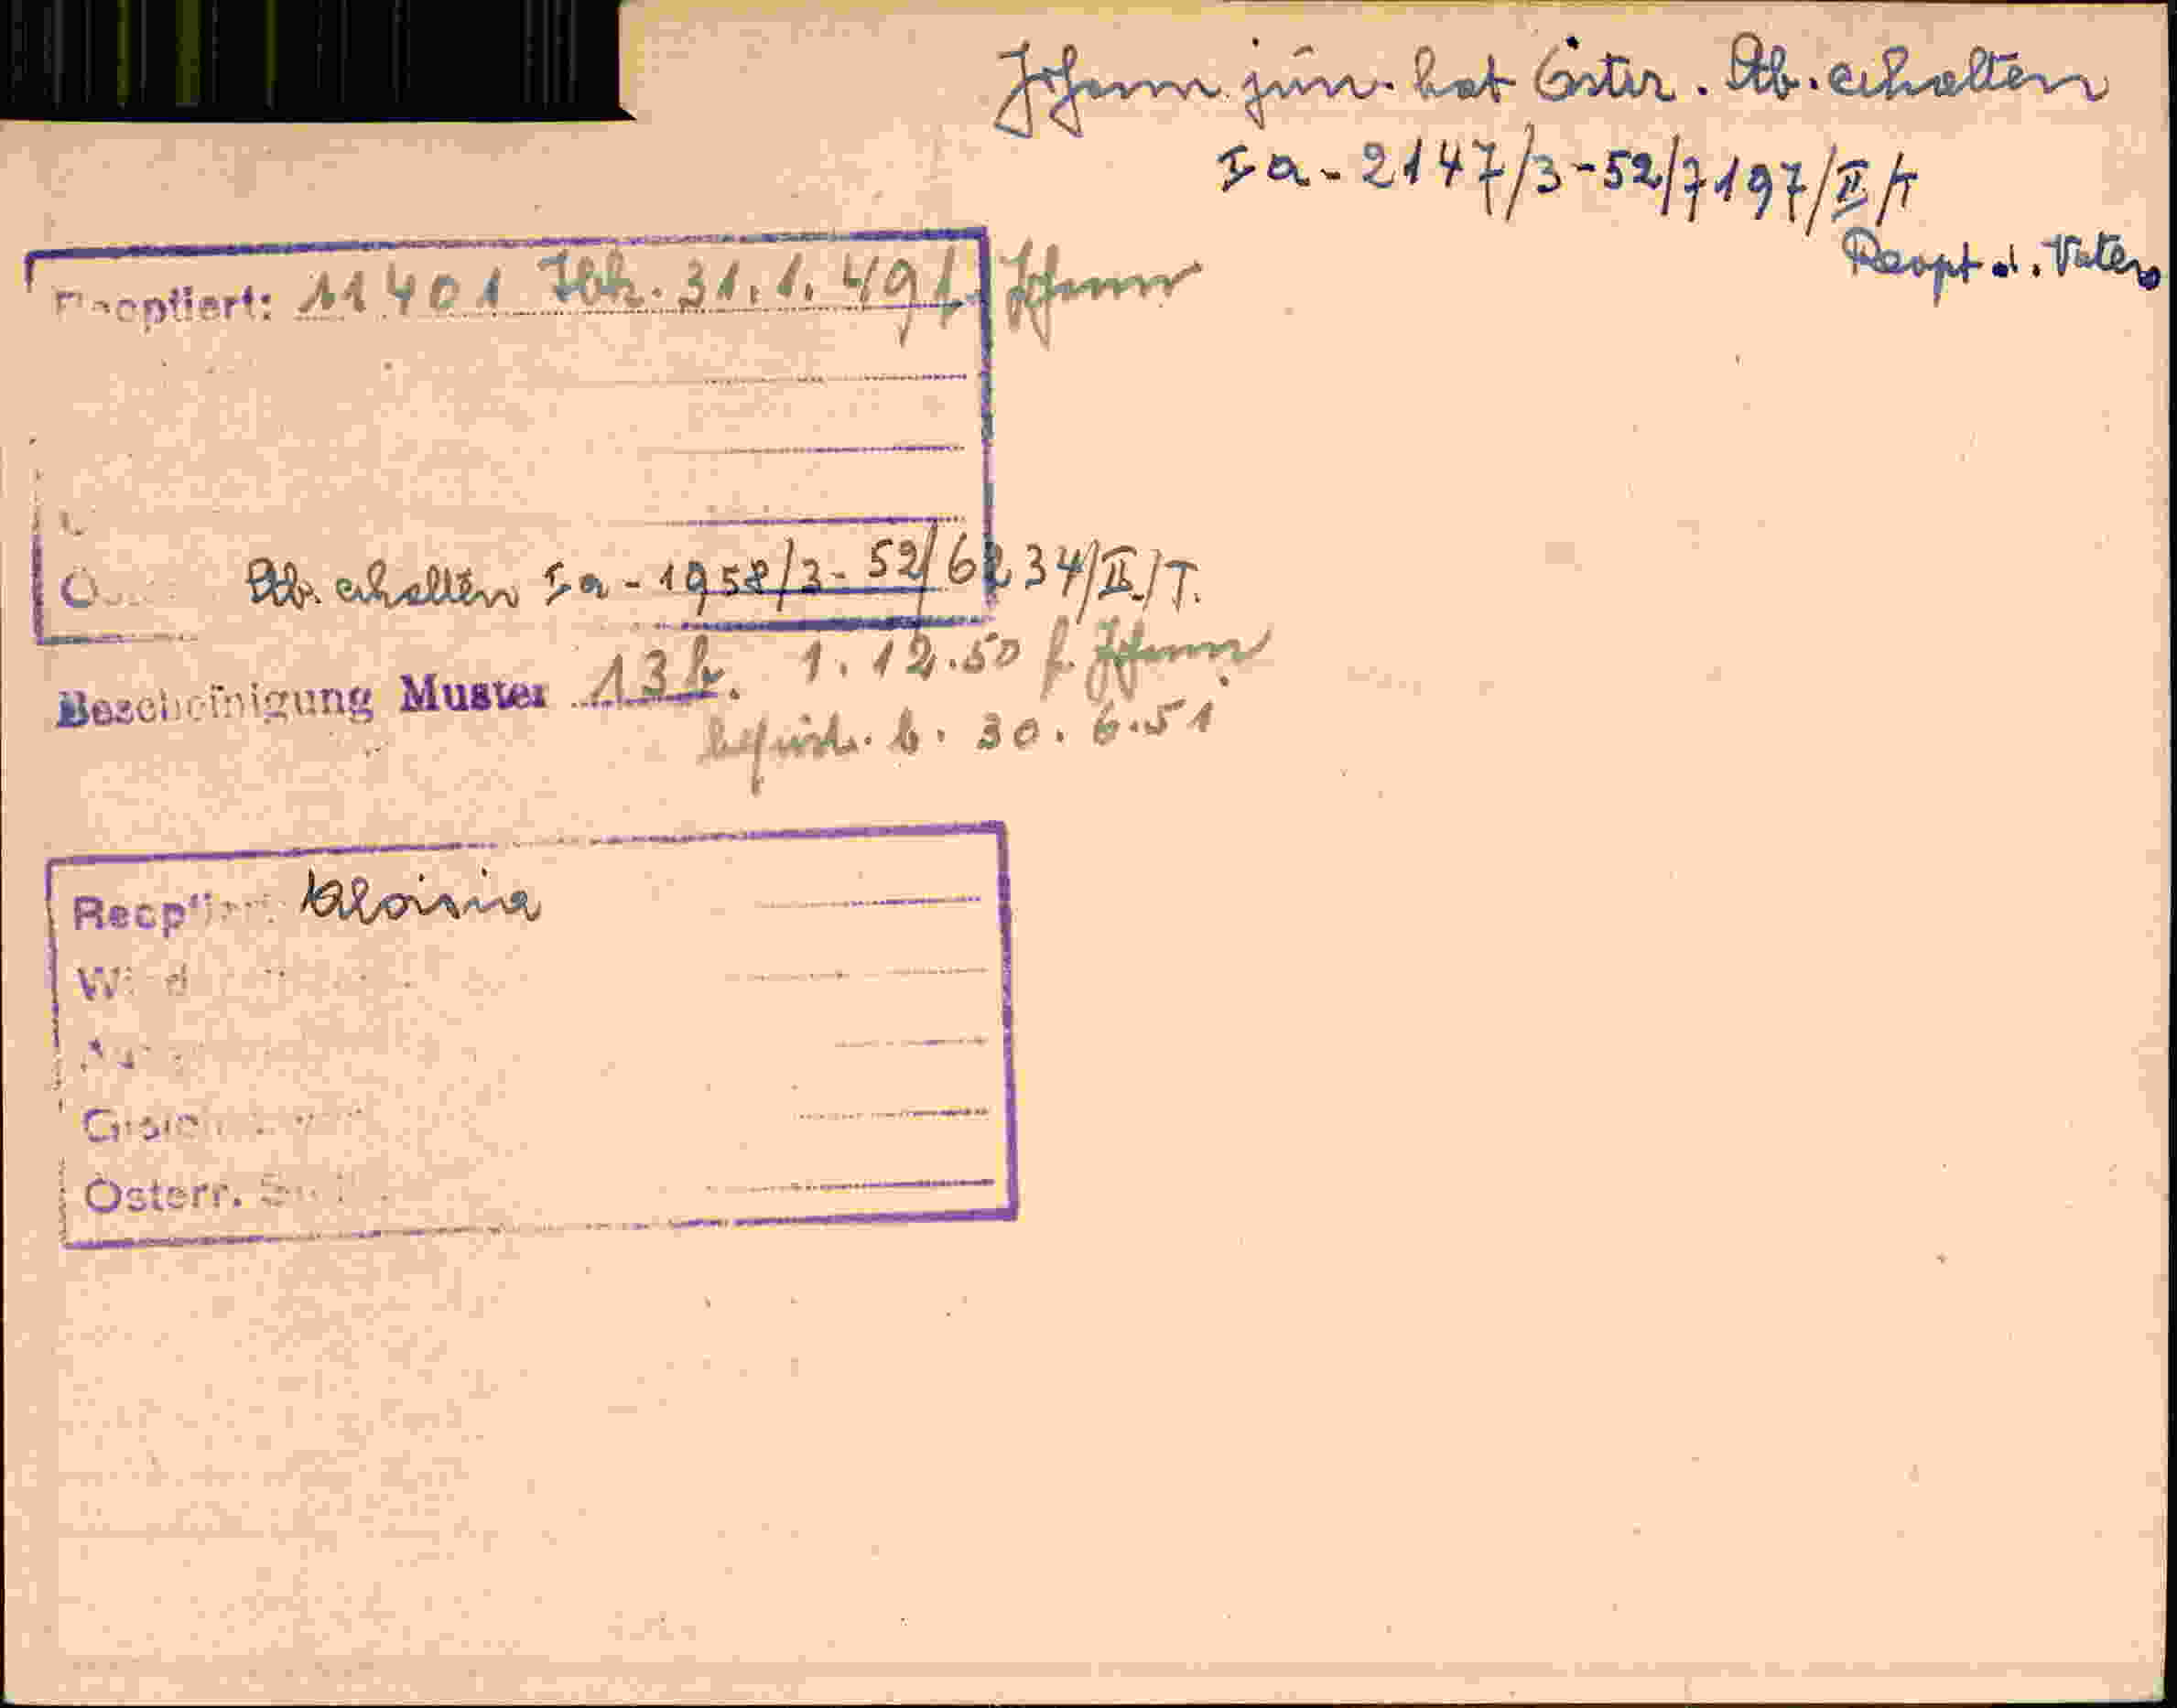 Johann jun. hat Öster. Stb. erhalten
Ia-2147/3-52/7197/II/T
Reopt d. Vaters
Reoptiert: 11401 Ibk. 31.1.49 f. Johann
Stb. erhalten Ia-1958/3-52/6234/II./T.
Bescheinigung Muster 13b. 1.12.50 f. Johann
befrist. b. 30.6.51
Aloisia
Österr.